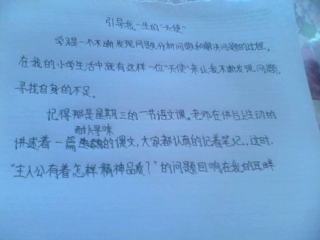 引导我一生的"天使"
学习是一个不断发现问题分析问题和解决问题的过程。
在我的小学生活中就有这样一位"天使"来让我不断发现问题,
寻找自身的不足。
记得那是星期三的一节语文课,老师在讲台上生动的
耐人寻味
讲述着一篇的课文,大家都认真的记着笔记,这时,
"主人公有着怎样精神品质?"的问题回响在我的耳畔